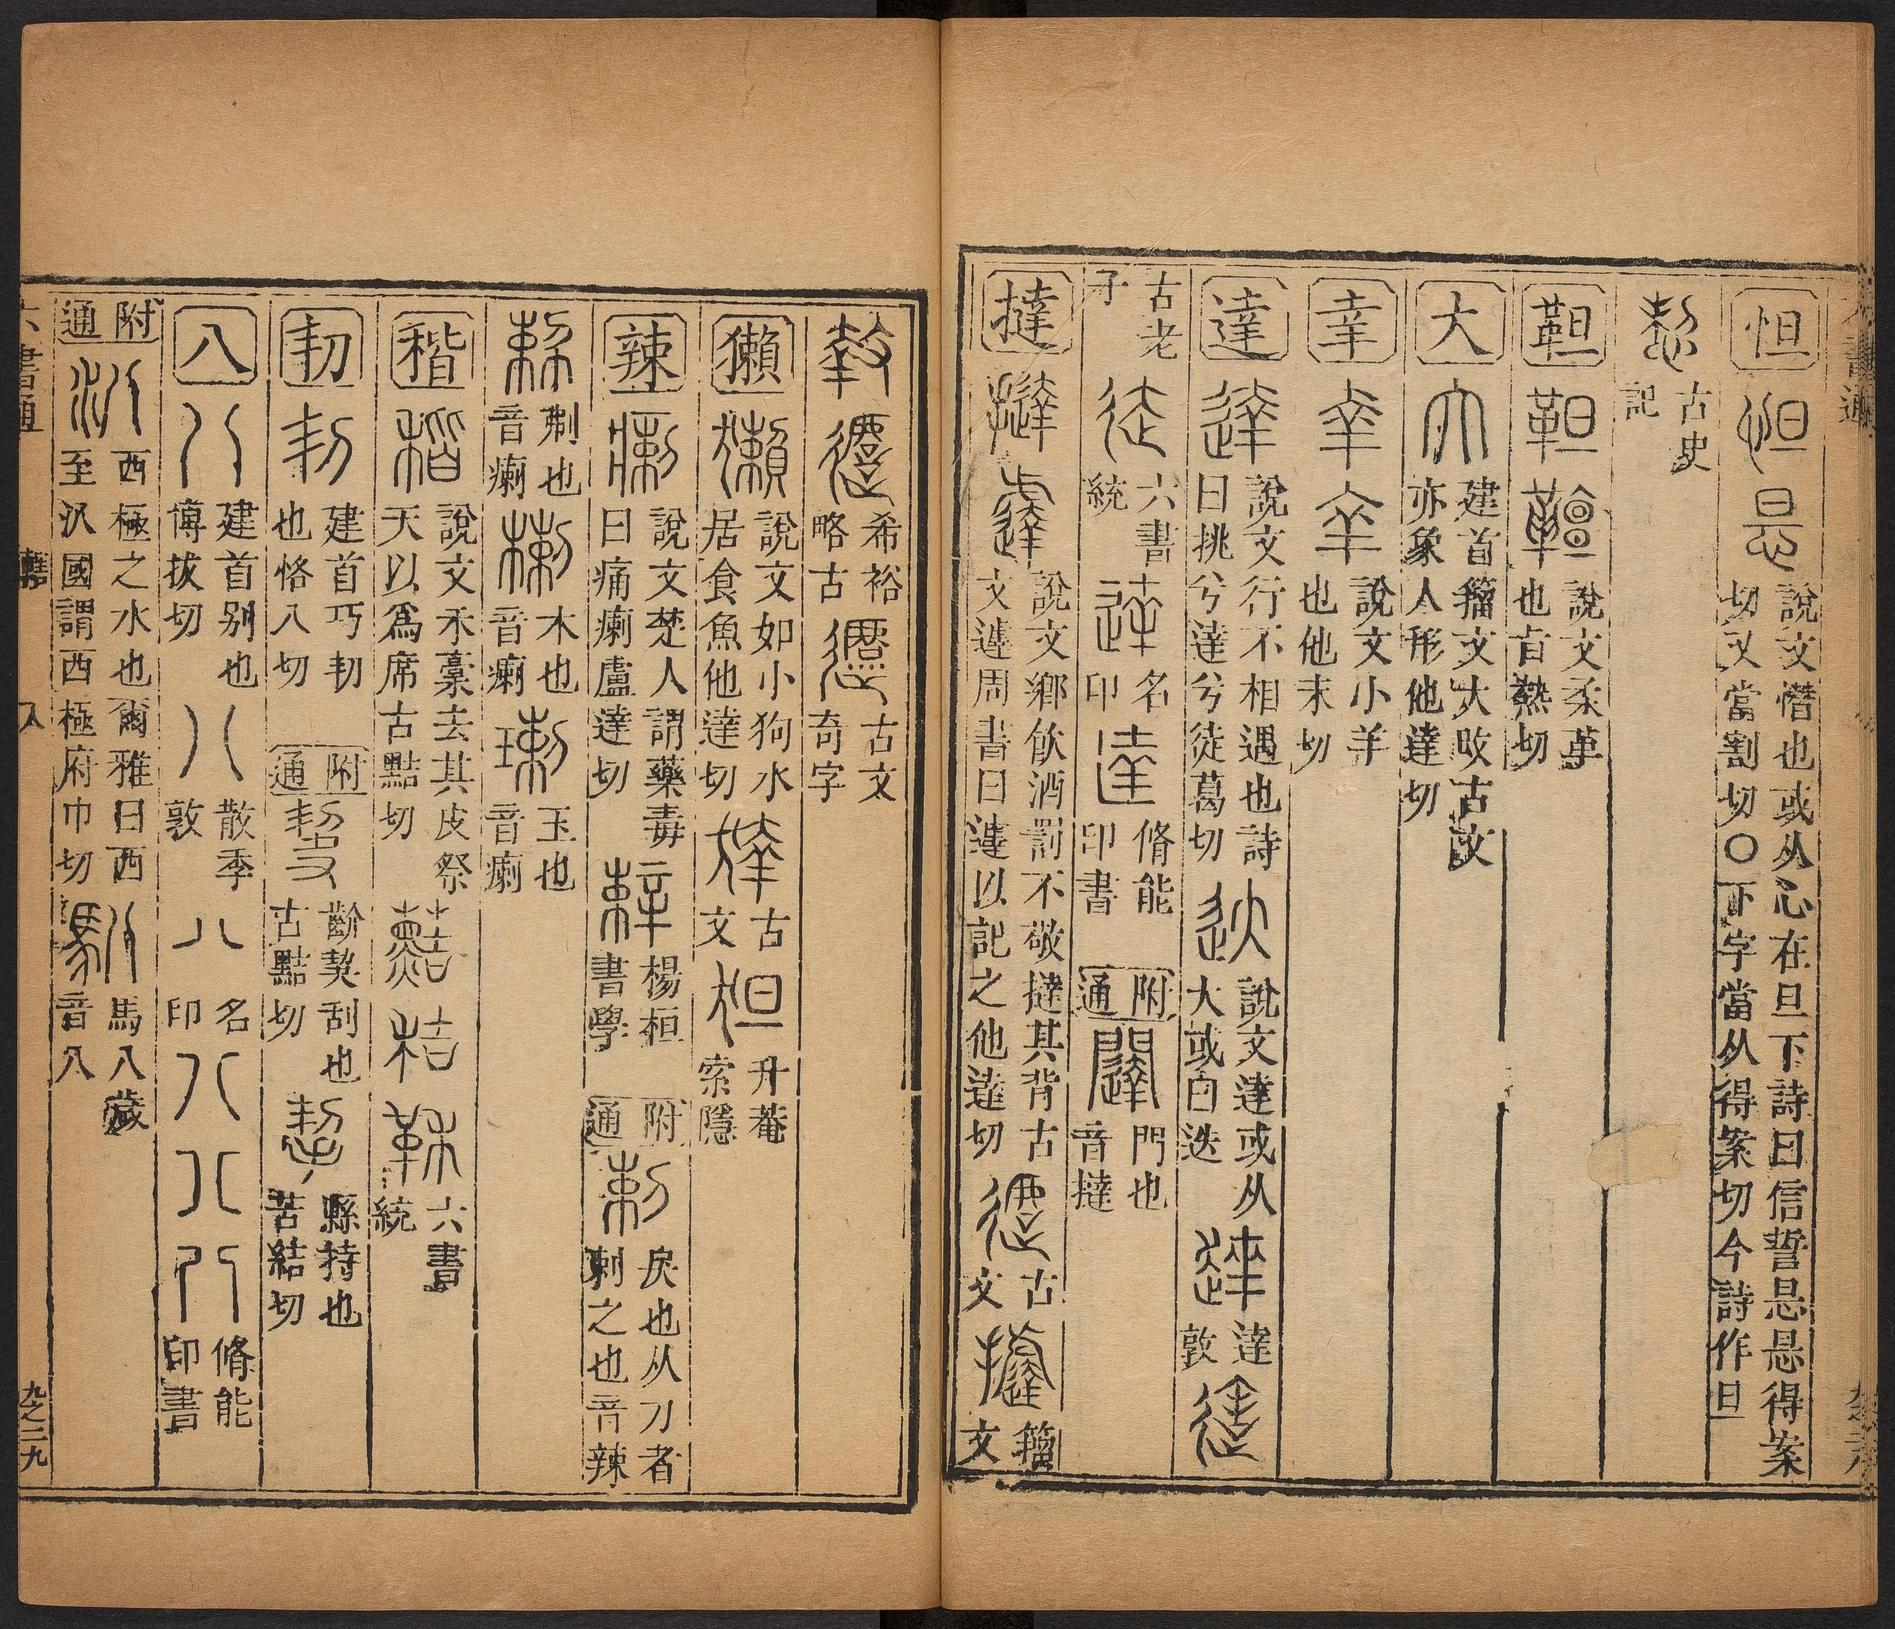 怛
說文憯也或从心在旦下詩曰信誓悬悬得案
切又當割切〇下字當从得案切今詩作旦
古史
記
靼
說文柔革
也旨熱切
大
建首籀文大攺古文
亦象人形他達切
羍
說文小羊
也他末切
達
說文行不相遇也詩
曰挑兮達兮徒葛切
說文達或从
大或曰迭
達
敦
古老
子
六書
統
名
印
脩能
印書
附
通
門也
音撻
撻
說文鄉飲酒罰不敬撻其背古
文𨔶周書曰𨔶以記之他達切
古
文
籀
文
希裕
略古
古文
奇字
獺
說文如小狗水
居食魚他達切
古
文
升菴
索隱
辣
說文楚人謂藥毒
曰痛瘌盧達切
楊桓
書學
附
通
戾也从刀者
剌之也音辣
㓨也
音瘌
木也
音瘌
玉也
音瘌
稭
說文禾稾去其皮祭
天以爲席古黠切
六書
統
㓞
建首巧㓞
也恪八切
附
通
齘契刮也
古黠切
縣持也
苦結切
八
建首别也
博拔切
散季
敦
名
印
脩能
印書
附
通
西極之水也爾雅曰西
至汃國謂西極府巾切
馬八歲
音八
六書通
八
九之二九